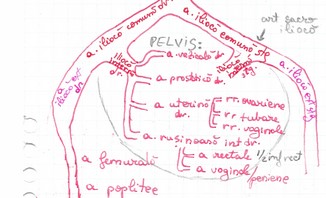 a. iliocă comună dr.
a. iliocă comună stg
art sacro
iliocă
PELVIS:
a. vezicală dr.
iliocă
internă
dr.
iliocă
internă
stg.
a
iliocă ext
dr
a. iliocă ext stg
a. prostatică dr.
a. uterină
dr.
rr. ovariene
rr. tubare
rr. vaginale
a. rusinoasă int dr.
a rectale
1/2 inf rect
a vaginale
peniene
a femurală
a poplitee